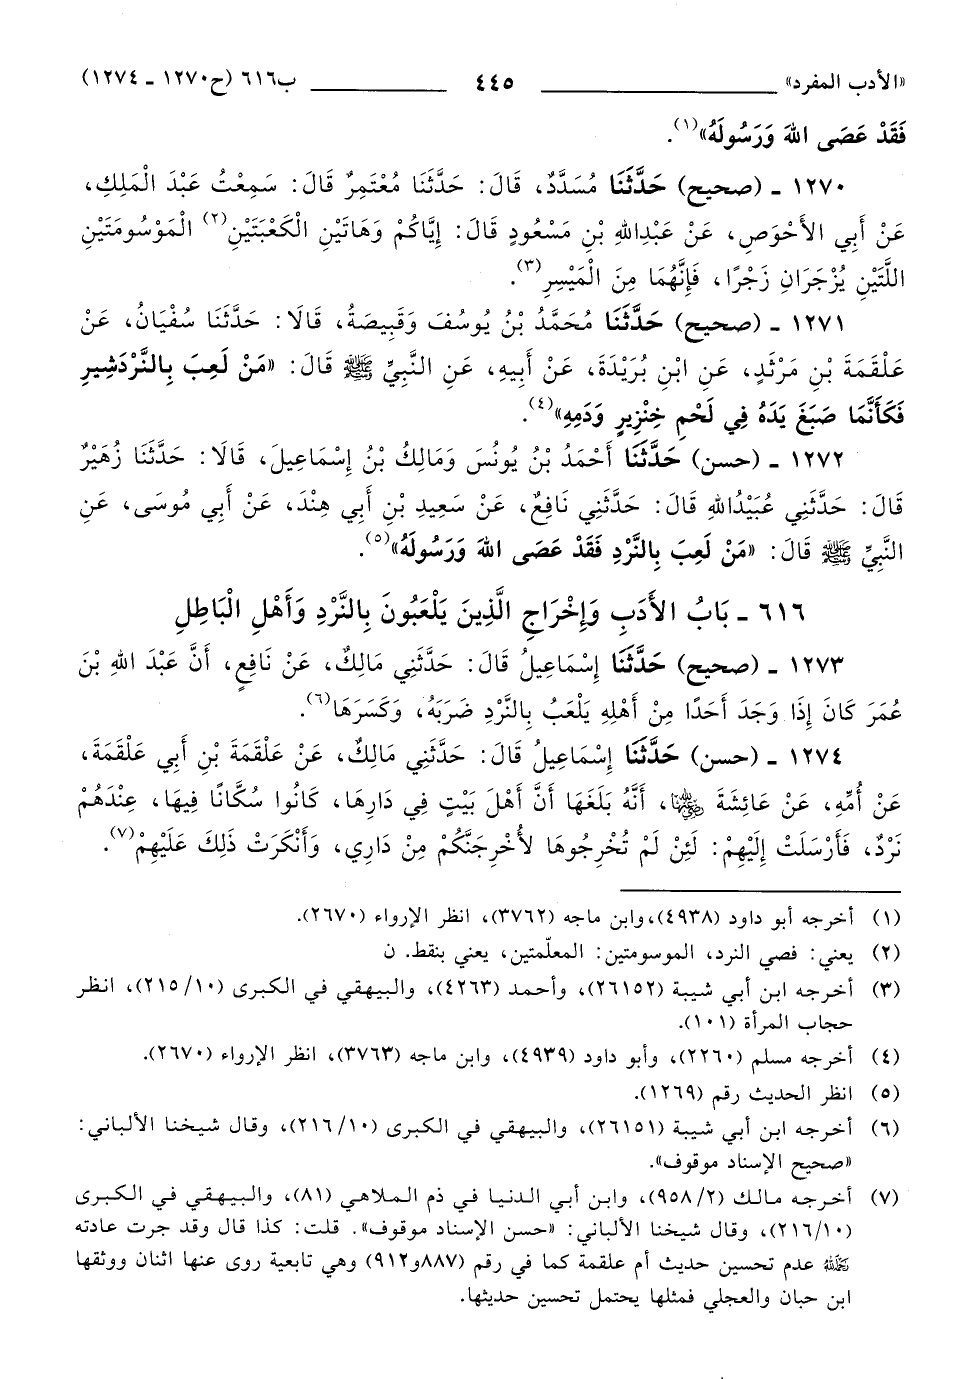 «الأدب المفرد» ٤٤٥ ب٦١٦ (ح١٢٧٠ ـ ١٢٧٤)
فَقَدْ عَصَى اللهَ وَرَسُولَهُ»(١).
١٢٧٠ ـ (صحيح) حَدَّثَنَا مُسَدَّدٌ، قَالَ: حَدَّثَنَا مُعْتَمِرٌ قَالَ: سَمِعْتُ عَبْدَ الْمَلِكِ،
عَنْ أَبِي الأَحْوَصِ، عَنْ عَبْدِاللهِ بْنِ مَسْعُودٍ قَالَ: إِيَّاكُمْ وَهَاتَيْنِ الْكَعْبَتَيْنِ(٢) الْمَوْسُومَتَيْنِ
اللَّتَيْنِ يُزْجَرَانِ زَجْرًا، فَإِنَّهُمَا مِنَ الْمَيْسِرِ(٣).
١٢٧١ ـ (صحيح) حَدَّثَنَا مُحَمَّدُ بْنُ يُوسُفَ وَقَبِيصَةُ، قَالَا: حَدَّثَنَا سُفْيَانُ، عَنْ
عَلْقَمَةَ بْنِ مَرْثَدٍ، عَنِ ابْنِ بُرَيْدَةَ، عَنْ أَبِيهِ، عَنِ النَّبِيِّ ﷺ قَالَ: «مَنْ لَعِبَ بِالنَّرْدَشِيرِ
فَكَأَنَّمَا صَبَغَ يَدَهُ فِي لَحْمِ خِنْزِيرٍ وَدَمِهِ»(٤).
١٢٧٢ ـ (حسن) حَدَّثَنَا أَحْمَدُ بْنُ يُونُسَ وَمَالِكُ بْنُ إِسْمَاعِيلَ، قَالَا: حَدَّثَنَا زُهَيْرٌ
قَالَ: حَدَّثَنِي عُبَيْدُاللهِ قَالَ: حَدَّثَنِي نَافِعٌ، عَنْ سَعِيدِ بْنِ أَبِي هِنْدَ، عَنْ أَبِي مُوسَى، عَنِ
النَّبِيِّ ﷺ قَالَ: «مَنْ لَعِبَ بِالنَّرْدِ فَقَدْ عَصَى اللهَ وَرَسُولَهُ»(٥).
٦١٦ ـ بَابُ الأَدَبِ وَإِخْرَاجِ الَّذِينَ يَلْعَبُونَ بِالنَّرْدِ وَأَهْلِ الْبَاطِلِ
١٢٧٣ ـ (صحيح) حَدَّثَنَا إِسْمَاعِيلُ قَالَ: حَدَّثَنِي مَالِكٌ، عَنْ نَافِعٍ، أَنَّ عَبْدَ اللهِ بْنَ
عُمَرَ كَانَ إِذَا وَجَدَ أَحَدًا مِنْ أَهْلِهِ يَلْعَبُ بِالنَّرْدِ ضَرَبَهُ، وَكَسَرَهَا(٦).
١٢٧٤ ـ (حسن) حَدَّثَنَا إِسْمَاعِيلُ قَالَ: حَدَّثَنِي مَالِكٌ، عَنْ عَلْقَمَةَ بْنِ أَبِي عَلْقَمَةَ،
عَنْ أُمِّهِ، عَنْ عَائِشَةَ رضي الله عنها، أَنَّهُ بَلَغَهَا أَنَّ أَهْلَ بَيْتٍ فِي دَارِهَا، كَانُوا سُكَّانًا فِيهَا، عِنْدَهُمْ
نَرْدٌ، فَأَرْسَلَتْ إِلَيْهِمْ: لَئِنْ لَمْ تُخْرِجُوهَا لأُخْرِجَنَّكُمْ مِنْ دَارِي، وَأَنْكَرَتْ ذَلِكَ عَلَيْهِمْ(٧).
(١) أخرجه أبو داود (٤٩٣٨)،وابن ماجه (٣٧٦٢)، انظر الإرواء (٢٦٧٠).
(٢) يعني: فصي النرد، الموسومتين: المعلّمتين، يعني بنقط. ن
(٣) أخرجه ابن أبي شيبة (٢٦١٥٢)، وأحمد (٤٢٦٣)، والبيهقي في الكبرى (٢١٥/١٠)، انظر
حجاب المرأة (١٠١).
(٤) أخرجه مسلم (٢٢٦٠)، وأبو داود (٤٩٣٩)، وابن ماجه (٣٧٦٣)، انظر الإرواء (٢٦٧٠).
(٥) انظر الحديث رقم (١٢٦٩).
(٦) أخرجه ابن أبي شيبة (٢٦١٥١)، والبيهقي في الكبرى (٢١٦/١٠)، وقال شيخنا الألباني:
«صحيح الإسناد موقوف».
(٧) أخرجه مالك (٩٥٨/٢)، وابن أبي الدنيا في ذم الملاهي (٨١)، والبيهقي في الكبرى
(٢١٦/١٠)، وقال شيخنا الألباني: «حسن الإسناد موقوف». قلت: كذا قال وقد جرت عادته
رحمه الله عدم تحسين حديث أم علقمة كما في رقم (٨٨٧و٩١٢) وهي تابعية روى عنها اثنان ووثقها
ابن حبان والعجلي فمثلها يحتمل تحسين حديثها.